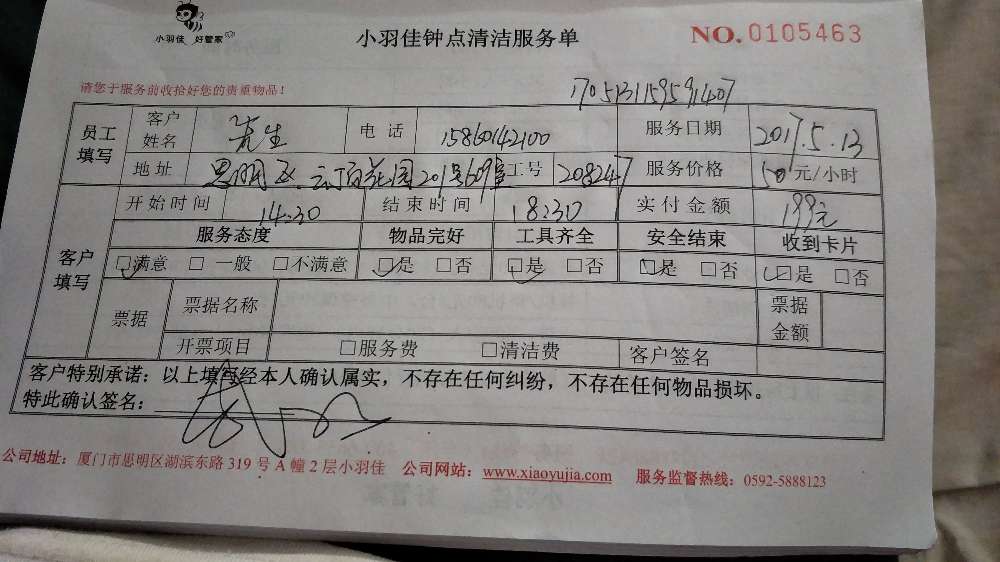 小羽佳 好管家
小羽佳钟点清洁服务单
NO. 0105463
请您于服务前收拾好您的贵重物品!
员工填写 客户姓名 先生 电话 15860142100 服务日期 2017.5.13
地址 思明区 201号609室 工号 208247 服务价格 50元/小时
客户填写 开始时间 14:30 结束时间 18:30 实付金额 199元
服务态度 物品完好 工具齐全 安全结束 收到卡片
□满意 □一般 □不满意 □是 □否 □是 □否 □是 □否 □是 □否
票据 票据名称 票据金额
开票项目 □服务费 □清洁费 客户签名
客户特别承诺:以上填写经本人确认属实,不存在任何纠纷,不存在任何物品损坏。
特此确认签名:
公司地址:厦门市思明区湖滨东路 319 号 A 幢 2 层小羽佳 公司网站:www.xiaoyujia.com 服务监督热线:0592-5888123